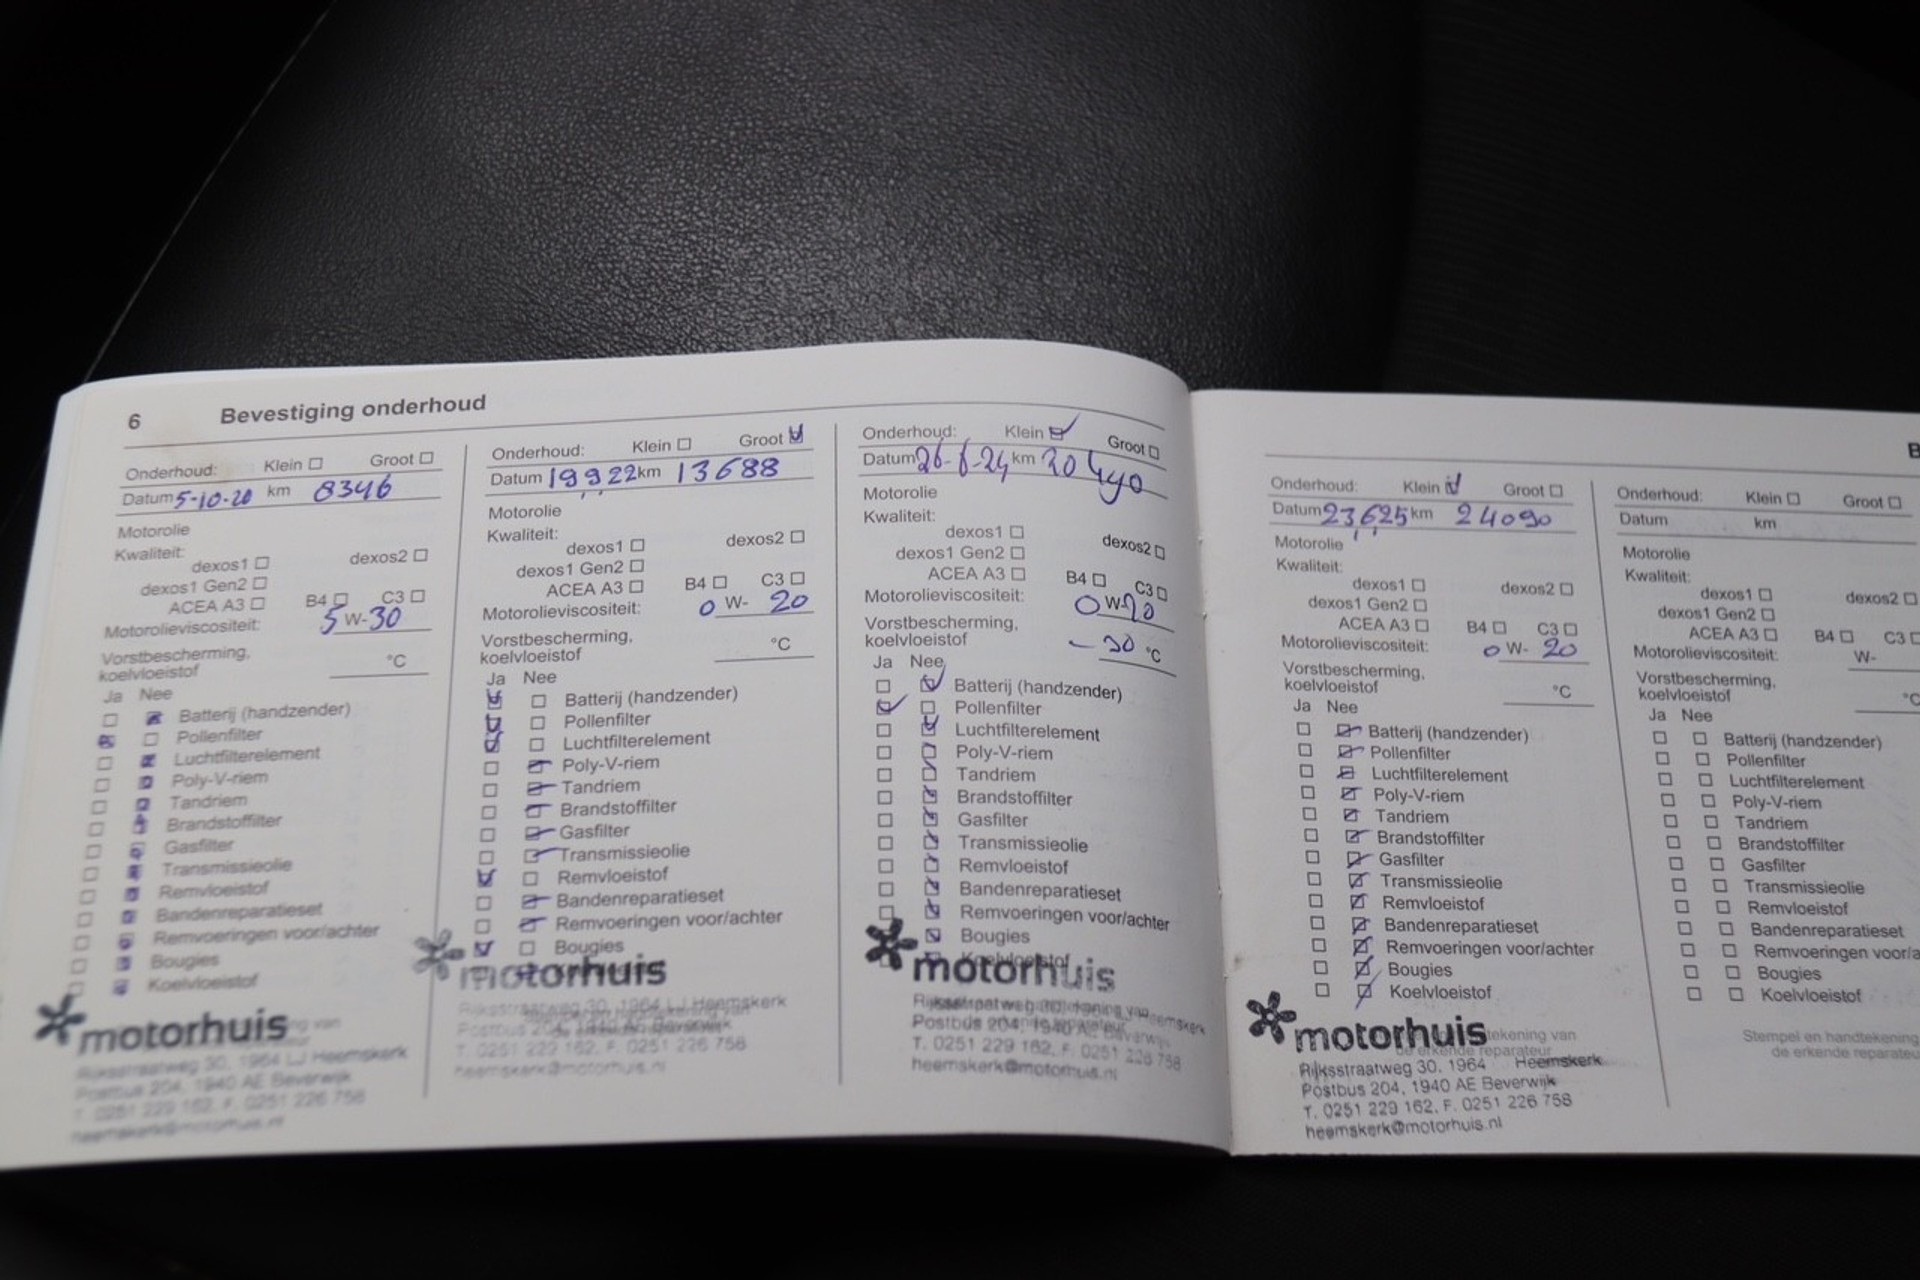 6 Bevestiging onderhoud
Onderhoud: Klein ☐ Groot ☐
Datum 5-10-20 km 8346
Motorolie
Kwaliteit:
dexos1 ☐ dexos2 ☐
dexos1 Gen2 ☐
ACEA A3 ☐ B4 ☐ C3 ☐
Motorolieviscositeit: 5 W-30
Vorstbescherming,
koelvloeistof °C
Ja Nee
Batterij (handzender)
Pollenfilter
Luchtfilterelement
Poly-V-riem
Tandriem
Brandstoffilter
Gasfilter
Transmissieolie
Remvloeistof
Bandenreparatieset
Remvoeringen voor/achter
Bougies
Koelvloeistof
motorhuis
Rijksstraatweg 30, 1964 LJ Heemskerk
Postbus 204, 1940 AE Beverwijk
T. 0251 229 162, F. 0251 226 758
heemskerk@motorhuis.nl
Onderhoud: Klein ☐ Groot ☑
Datum 19 9 22 km 13688
Motorolie
Kwaliteit:
dexos1 ☐ dexos2 ☐
dexos1 Gen2 ☐
ACEA A3 ☐ B4 ☐ C3 ☐
Motorolieviscositeit: 0 W- 20
Vorstbescherming,
koelvloeistof °C
Ja Nee
Batterij (handzender)
Pollenfilter
Luchtfilterelement
Poly-V-riem
Tandriem
Brandstoffilter
Gasfilter
Transmissieolie
Remvloeistof
Bandenreparatieset
Remvoeringen voor/achter
Bougies
motorhuis
Rijksstraatweg 30, 1964 LJ Heemskerk
Postbus 204, 1940 AE Beverwijk
T. 0251 229 162, F. 0251 226 758
heemskerk@motorhuis.nl
Onderhoud: Klein ☑ Groot ☐
Datum 26-6-24 km 20490
Motorolie
Kwaliteit:
dexos1 ☐ dexos2 ☐
dexos1 Gen2 ☐
ACEA A3 ☐ B4 ☐ C3 ☐
Motorolieviscositeit: 0 W-20
Vorstbescherming,
koelvloeistof -30 °C
Ja Nee
Batterij (handzender)
Pollenfilter
Luchtfilterelement
Poly-V-riem
Tandriem
Brandstoffilter
Gasfilter
Transmissieolie
Remvloeistof
Bandenreparatieset
Remvoeringen voor/achter
Bougies
Koelvloeistof
motorhuis
Rijksstraatweg 30, 1964 Heemskerk
Postbus 204, 1940 AE Beverwijk
T. 0251 229 162, F. 0251 226 758
heemskerk@motorhuis.nl
Onderhoud: Klein ☑ Groot ☐
Datum 23 6 25 km 24090
Motorolie
Kwaliteit:
dexos1 ☐ dexos2 ☐
dexos1 Gen2 ☐
ACEA A3 ☐ B4 ☐ C3 ☐
Motorolieviscositeit: 0 W- 20
Vorstbescherming,
koelvloeistof °C
Ja Nee
Batterij (handzender)
Pollenfilter
Luchtfilterelement
Poly-V-riem
Tandriem
Brandstoffilter
Gasfilter
Transmissieolie
Remvloeistof
Bandenreparatieset
Remvoeringen voor/achter
Bougies
Koelvloeistof
motorhuis
tekening van
de erkende reparateur
Rijksstraatweg 30, 1964 Heemskerk
Postbus 204, 1940 AE Beverwijk
T. 0251 229 162, F. 0251 226 758
heemskerk@motorhuis.nl
B
Onderhoud: Klein ☐ Groot ☐
Datum km
Motorolie
Kwaliteit:
dexos1 ☐ dexos2 ☐
dexos1 Gen2 ☐
ACEA A3 ☐ B4 ☐ C3 ☐
Motorolieviscositeit: W-
Vorstbescherming,
koelvloeistof °C
Ja Nee
Batterij (handzender)
Pollenfilter
Luchtfilterelement
Poly-V-riem
Tandriem
Brandstoffilter
Gasfilter
Transmissieolie
Remvloeistof
Bandenreparatieset
Remvoeringen voor/a
Bougies
Koelvloeistof
Stempel en handtekening
de erkende reparateu